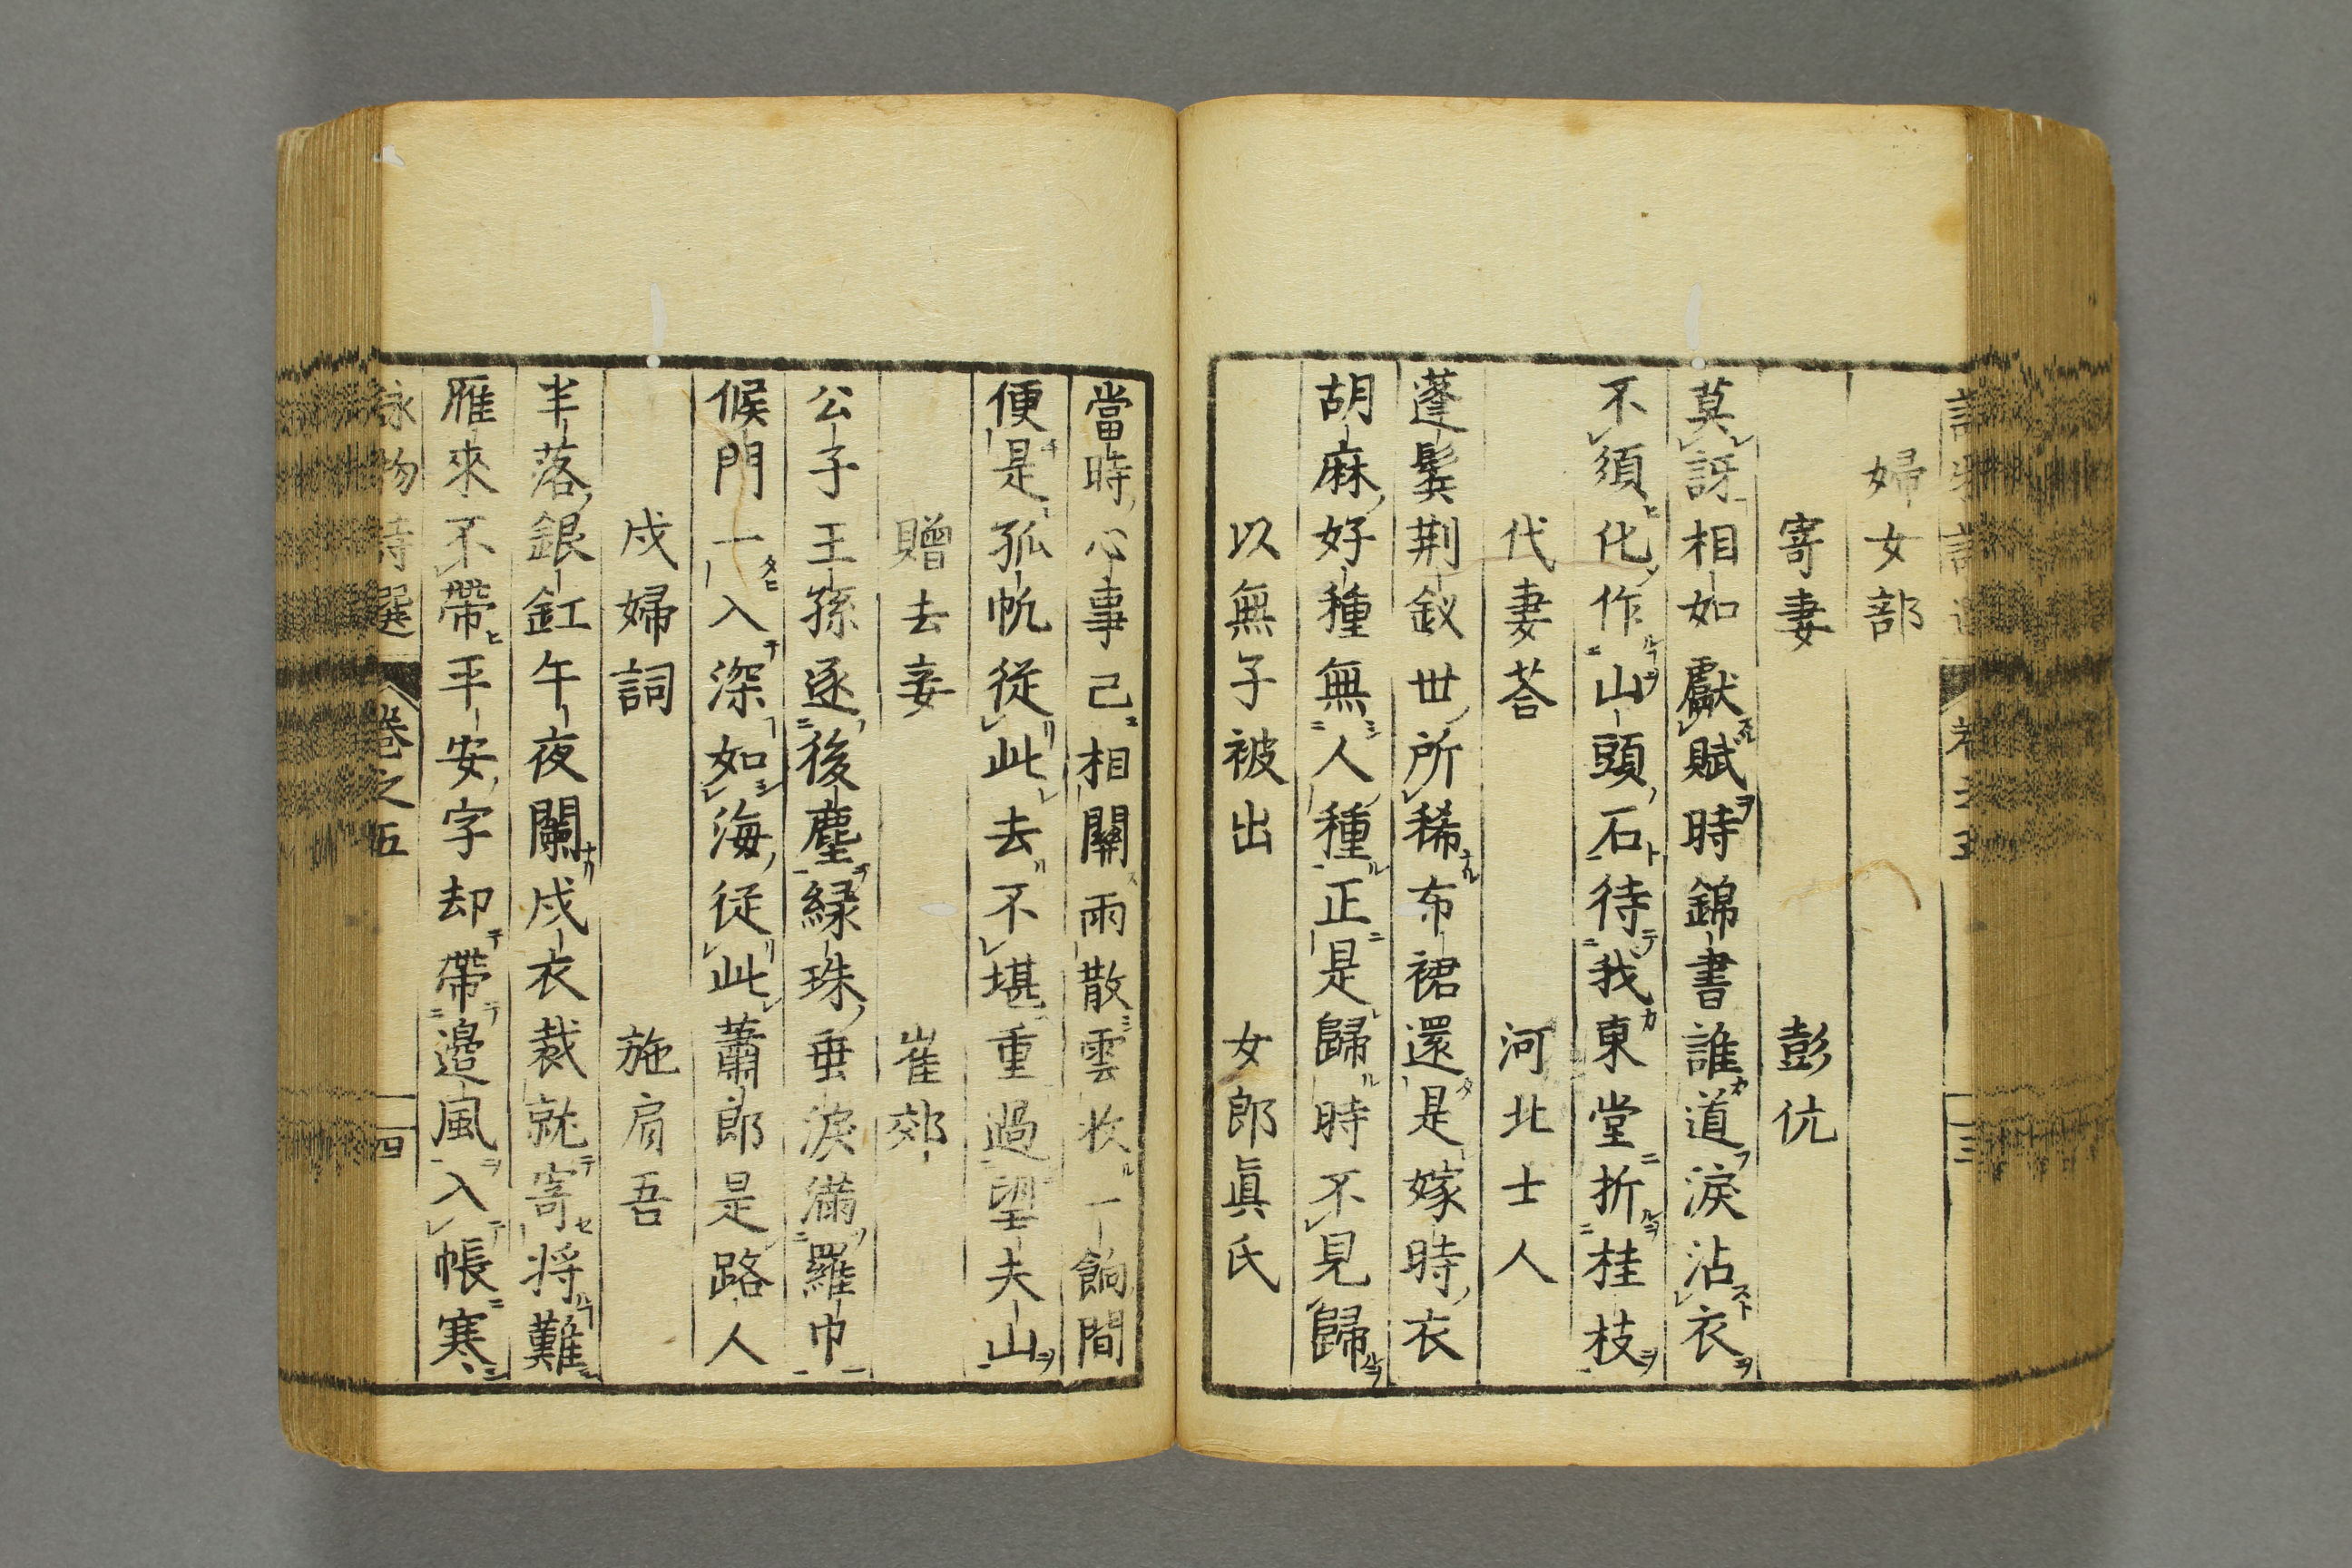 婦女部
寄妻　彭伉
莫訝相如獻賦時錦書誰道淚沾衣
不須化作山頭石待我東堂折桂枝
代妻荅　河北士人
蓬鬂荆釵世所稀布裙還是嫁時衣
胡麻好種無人種正是歸時不見歸
以無子被出　女郎眞氏
當時心事已相關雨散雲收一餉間
便是孤帆從此去不堪重過望夫山
贈去妾　崔郊
公子王孫逐後塵緑珠垂淚滿羅巾
候門一入深如海從此蕭郎是路人
戍婦詞　施肩吾
半落銀釭午夜闌戍衣裁就寄將難
雁來不帶平安字却帶邉風入帳寒
詠物詩選　卷之五　四